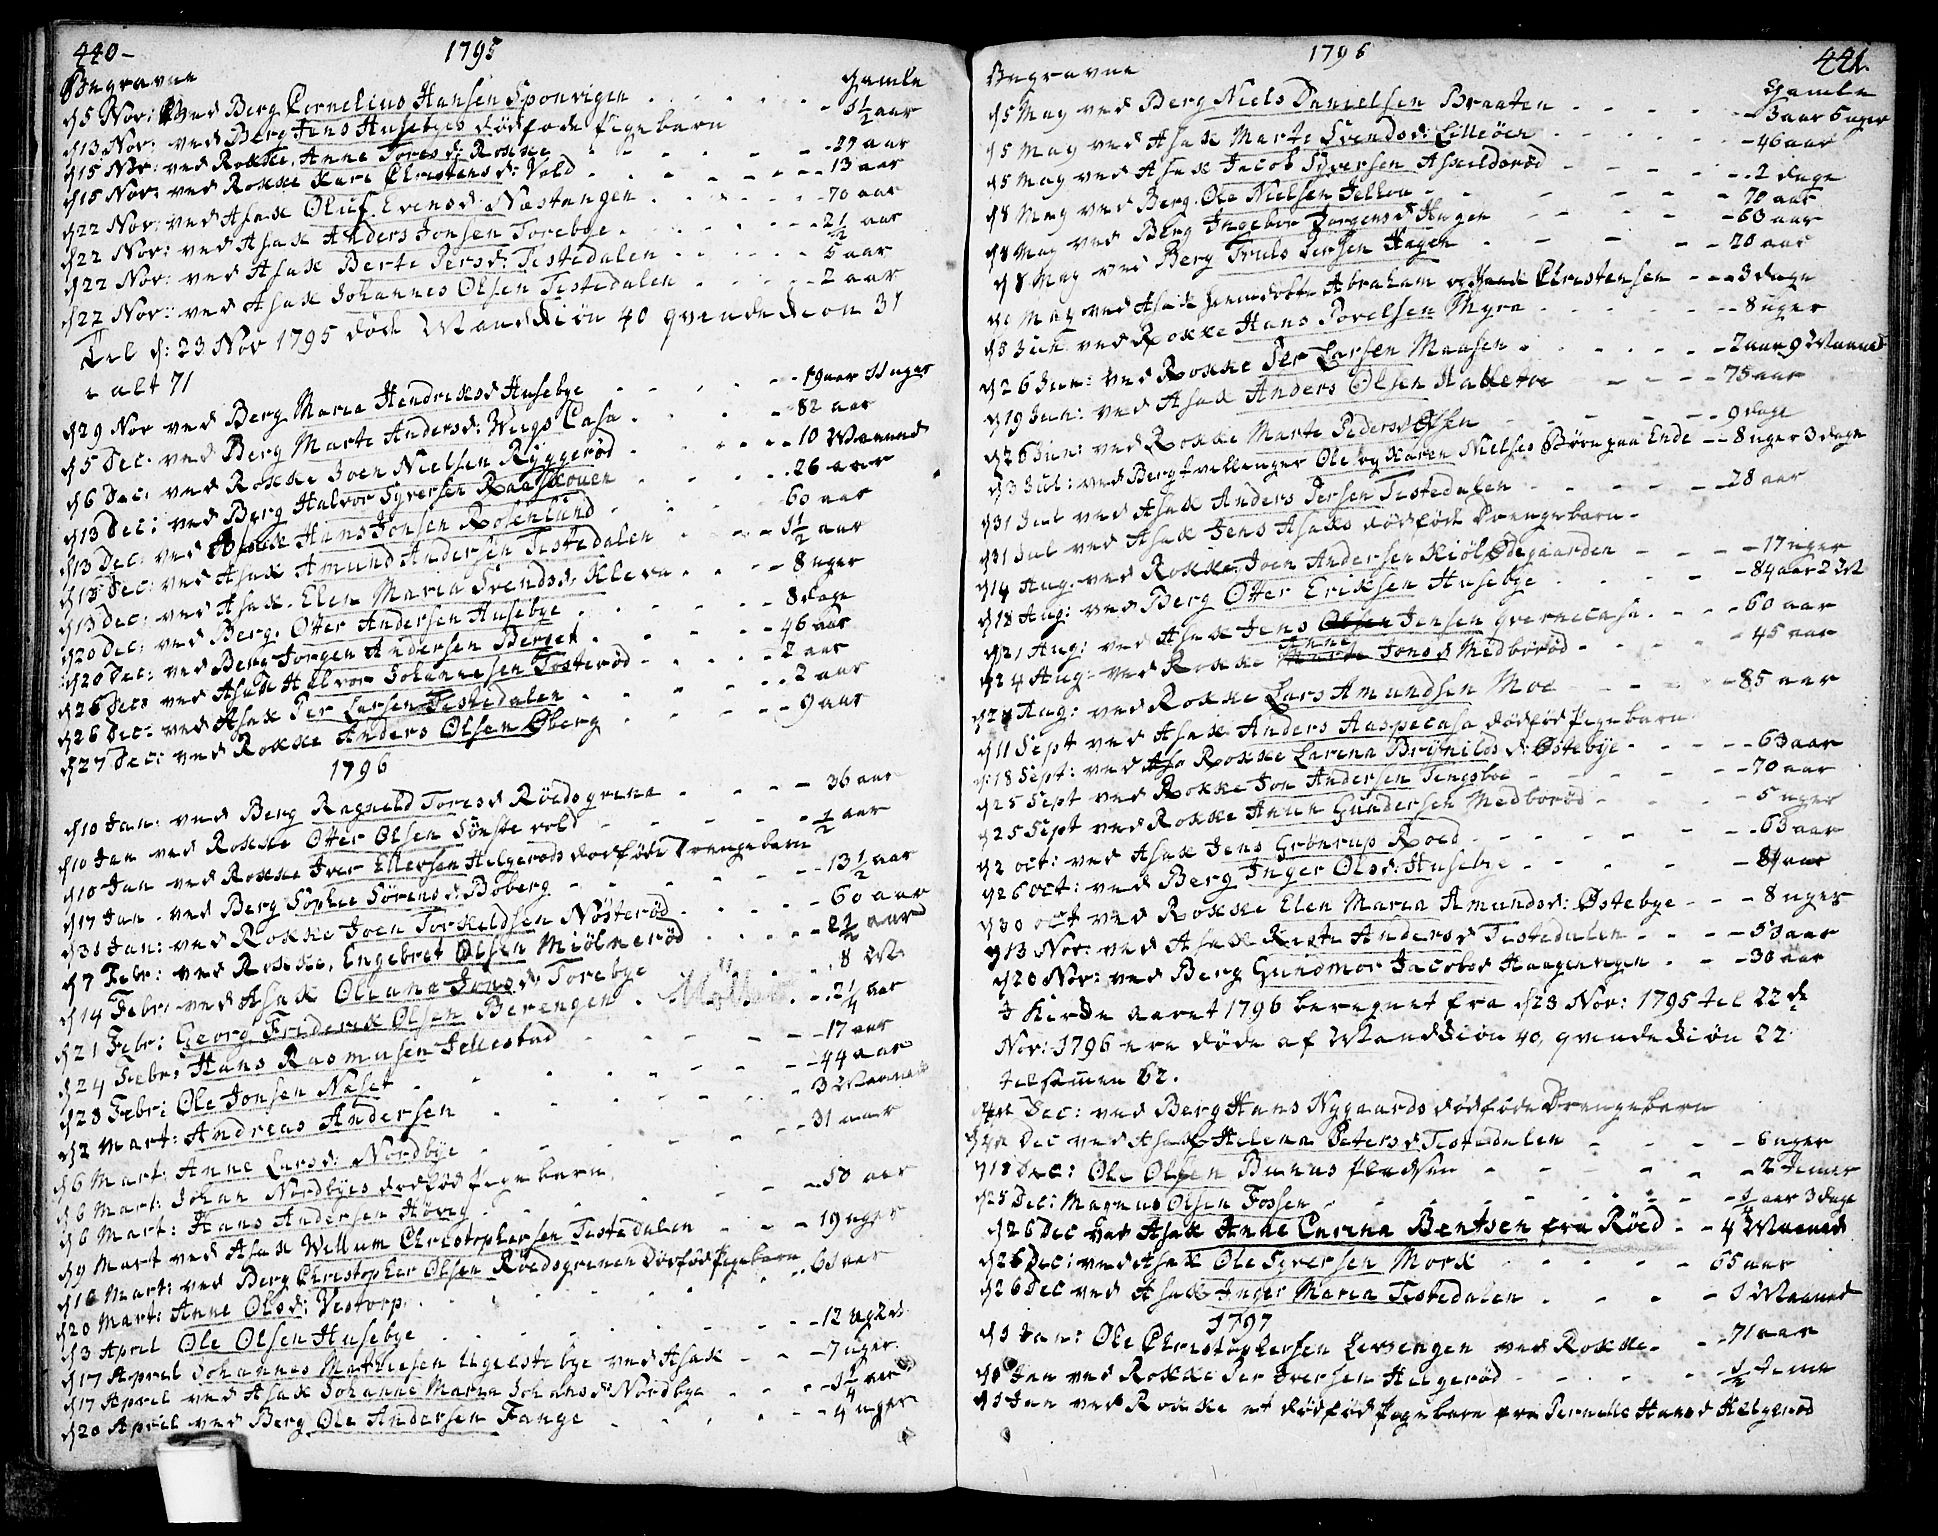 440-
1795
Begravne
Gamle
d 5 Nov: ved Berg Cornelius Hansen Sponvigen - 1 1/2 aar
d 13 Nov: ved Berg Jens Husebyes dødfødde Pigebarn
d 15 Nov: ved Rokke, Anne Toresd: Rokke - 29 aar
d 15 Nov: ved Rokke Kari Christensd: Vold - 13 aar
d 22 Nov: ved Asak Oluf Evensd: Næstangen - 70 aar
d 22 Nov: ved Asak Anders Jonsen Torebye - 2 1/2 aar
d 22 Nov: ved Asak Berte Persd: Tistedalen - 5 aar
d 22 Nov: ved Asak Johannes Olsen Tistedalen - 2 aar
Til d: 23 Nov 1795 døde Mandkiøn 40 qvindekiøn 31
i alt 71
d 29 Nov ved Berg Maria Hendriksd Husebye - 19 aar 11 uger
d 5 Dec. ved Berg Marte Andersd: Wiigs Casa - 82 aar
d 6 Dec: ved Rokke Joen Nielsen Ryggerød - 10 Maaned
d 13 Dec: ved Berg Halvor Syversen Raaskouen - 26 aar
d 13 Dec: ved Asak Hans Jonsen Rosenlund - 60 aar
d 13 Dec: ved Asak Amund Andersen Tistedalen - 1 1/2 aar
d 13 Dec: ved Asak. Elen Maria Svendsd: Kleva - 8 uger
d 20 Dec: ved Berg. Otter Andersen Husebye - 8 dage
d 20 Dec: ved Berg Jørgen Andersen Berget - 46 aar
d 26 Dec: ved Asak Halvor Johannesen Tosterød - 2 aar
d 26 Dec: ved Asak Per Larsen Tistedalen - 2 aar
d 27 Dec: ved Rokke Anders Olsen Øberg - 9 aar
1796
d 10 Jan: ved Berg Ragnild Toresd Røedsgrena - 36 aar
d 10 Jan ved Rokke Otter Olsen Sønstevold - 1/2 aar
d 10 Jan ved Rokke Iver Ellefsen Helgerøds dødføde Drengebarn
d 17 Jan. ved Berg Sophie Sørensd: Boberg - 13 1/2 aar
d 31 Jan: ved Rokke Joen Torkeldsen Nøsterød - 60 aar
d 7 Febr: ved Rokke, Engebret Olsen Miølnerød - 2 1/2 aar
d 14 Febr: ved Asak Oleana Jonsd Torebye - 8 M.
d 21 Febr: Georg Friderik Olsen Berengen - 2 1/4 aar
d 24 Febr: Hans Rasmusen Jellestad - 17 aar
d 28 Febr: Ole Jonsen Næset - 44 aar
d 2 Mart: Andreas Andersen - 3 Maaned
d 6 Mart: Anne Larsd: Nordbye - 31 aar
d 6 Mart: Johan Nordbyes dødfød Pigebarn
d 6 Mart: Hans Andersen Høvig - 50 aar
d 9 Mart ved Asak Willum Christophersen Tistedalen - 19 uger
d 16 Mart: ved Berg Christopher Olsen Røedsgrenen Dødfød Pigebarn
d 20 Mart: Anne Olsd: Vestorp - 60 aar
d 3 April Ole Olsen Husebye - 12 uger
d 17 April Johannes Mathiesen Ugelstebye ved Asak - 7 uger
d 17 April ved Asak Johanne Maria Johansd: Nordbye - 1 1/4 aar
d 20 April ved Berg Ole Andersen Fange - 4 uger
1796
441.
Begravne
Gamle
d 5 May ved Berg Niels Danielsen Braaten - 3 aar 5 uger
d 5 May ved Asak Marte Svendsd: Lilleøen - 46 aar
d 5 May ved Asak Jacob Syversen Askildsrød - 2 dage
d 8 May ved Berg. Ole Nielsen Jellou - 70 aar
d 8 May ved Berg Ingebor Jørgensd Hagen - 63 aar
d 8 May ved Berg Truls Persen Hagen - 20 aar
May ved Asak hiemdøbte Abraham og Isak Christensen - 3 dage
d 5 Jun ved Rokke Hans Povelsen Myra - 8 uger
d 26 Jun: ved Rokke Per Larsen Maasen - 2 aar 9 Maaned
d 19 Jun: ved Asak Anders Olsen Halleroe - 75 aar
d 26 Jun: ved Rokke Marte Pedersd Olsen - 9 dage
d 3 Jul: ved Berg tvillinger Ole og Karen Nielses Børn paa Ende - 8 uger 3 dage
d 31 Jul ved Asak Anders Persen Tistedalen - 28 aar
d 31 Jul ved Asak Jens Asaks dødføde Drengebarn.
d 14 Aug. ved Rokke Joen Andersen Kiøl Ødegaarden - 17 uger
d 18 Aug: ved Berg Otter Eriksen Husebye - 84 aar 2 M
d 21 Aug: ved Asak Jens Olsen Jensen qvernecasa - 60 aar
d 24 Aug: ved Rokke Marte Anne Jonsd Medbørød - 45 aar
d 28 Aug: ved Rokke Lars Amundsen Moe - 85 aar
d 11 Sept ved Asak Anders Aaspecasa dødfød Pigebarn.
d: 18 Sept: ved Asa Rokke Larena Brynilds d: Østebye - 63 aar
d 25 Sept ved Rokke Jon Andersen Tingsloe - 70 aar
d 25 Sept ved Rokke Anun Gundersen Medborød - 5 uger
d 2 oct: ved Asak Jens Grønrup Roed - 63 aar
d 26 oct: ved Berg Inger Olsd: Husebye - 84 aar
d 30 oct ved Rokke Elen Maria Amundsd: Østebye - 8 uger
d 13 Nov: ved Asak Kiste Andersd Tistedalen - 53 aar
d 20 Nov: ved Berg Gundmor Jacobsd Haagenvegen - 30 aar
I Kirke aaret 1796 beregnet fra d 23 Nov: 1795 til 22de
Nov: 1796 ere døde af Mandkiøn 40, qvindekiøn 22
tilsamen 62.
Dec: ved Berg Hans Nygaards dødføde Drengebarn
d 4 Dec ved Asak Helena Petersd Tistedalen - 6 uger
d 18 Dec: Ole Olsen Bunæs pladsen - 2 timer
d 25 Dec: Magnus Olsen Fossen - 1/4 aar 3 dage
d 26 Dec ved Asak Anne Carina Bentsen fra Røed - 4 Maaned
d 26 Dec: ved Asak Ole Syversen Mork - 65 aar
d 26 Dec ved Asak Inger Maria Tistedalen - 1 Maaned
1797
d 1 Jan: Ole Christophersen Lervengen ved Rokke - 71 aar
d 1 Jan ved Rokke Per Iversen Helgerød - 1/2 time
d 1 Jan ved Rokke et dødfød Pigebarn fra Pernille Hansd Helgerød